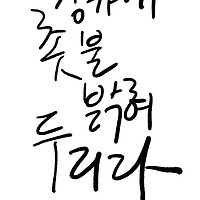 촛불
밝혀
두리라